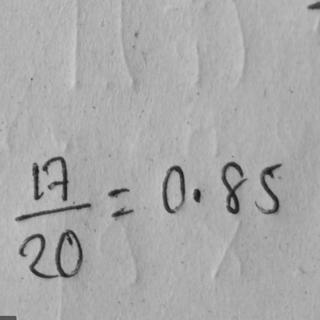 17/20 = 0.85